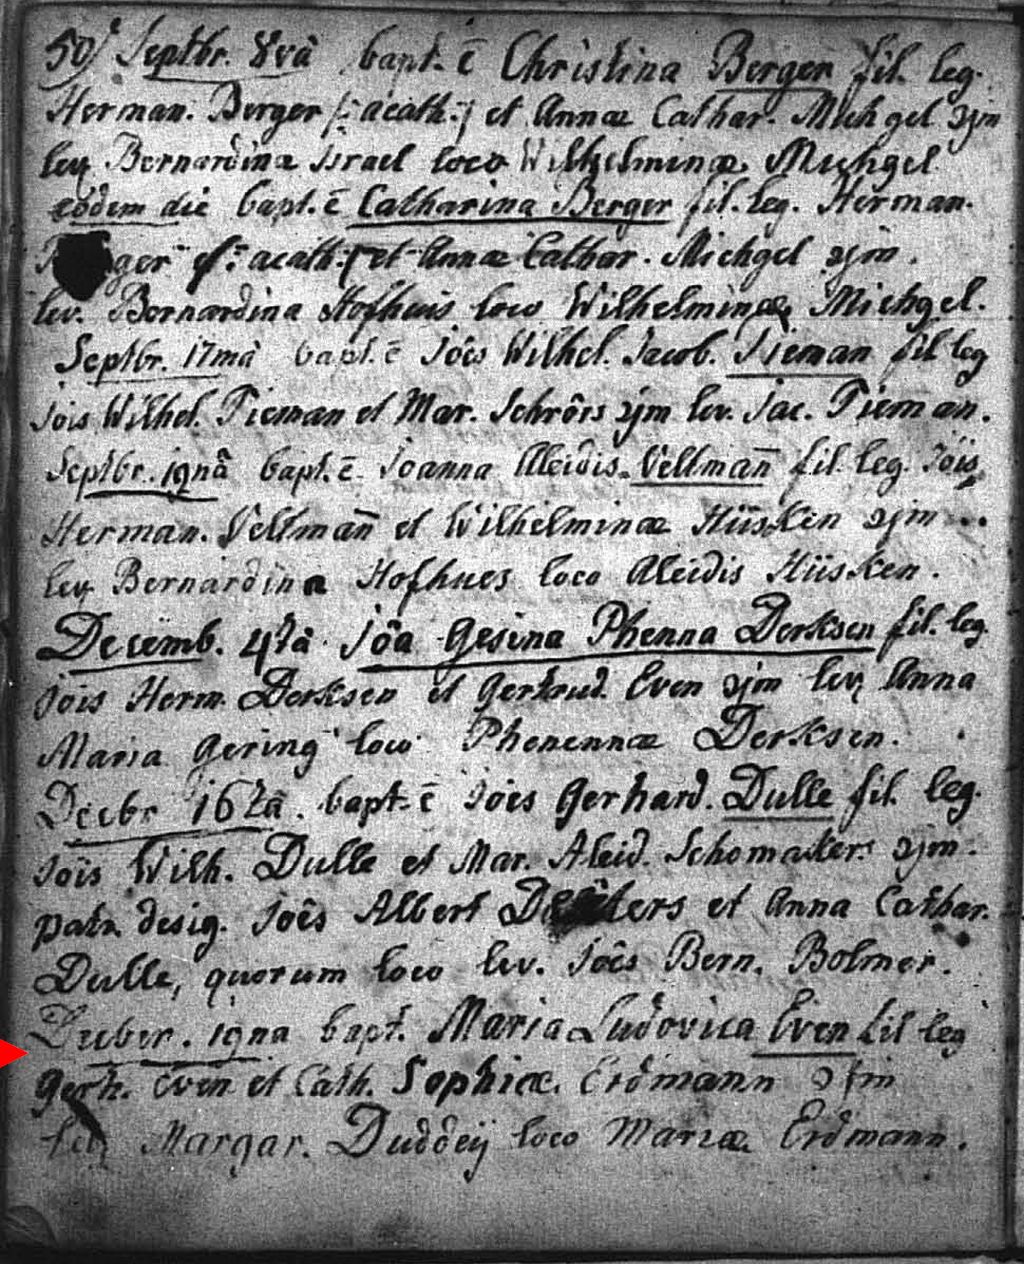 50) Septbr. 8va bapt. ē Christina Berger fil. leg.
Herman. Berger /: acath :/ et Annæ Cathar. Michgel ɔjm
lev. Bernardina Israel loco Wilhelminæ Michgel
eodem die bapt. ē Catharina Berger fil. leg. Herman.
ger /: acath :/ et Annæ Cathar. Michgel ɔjm.
lev. Bernardina Hofhuis loco Wilhelminæ Michgel.
Septbr. 17mâ bapt. ē Joês Wilhel. Jacob. Tieman fil leg
Jois Wilhel. Tieman et Mar. Schrôrs ɔjm lev. Jac. Tieman.
Septbr. 19nâ bapt. ē Joanna Aleidis Veltman̄ fil. leg. Jöis
Herman. Veltman̄ et Wilhelminæ Hüsken ɔjm
lev. Bernardina Hofhues loco Aleidis Hüsken.
Decemb. 4tâ Jôa Gesina Phenna Derksen fil. leg.
Jöis Herm. Derksen et Gertrud. Even ɔjm lev. Anna
Maria Gering loco Phenennæ Derksen.
Decbr 16tâ. bapt. ē Joês Gerhard. Dulle fil. leg.
Jöis Wilh. Dulle et Mar. Aleid. Schomaker. ɔjm.
patr. desig. Joês Albert et Anna Cathar.
Dulle, quorum loco lev. Joês Bern. Bolmer.
Decber. 19na bapt. Maria Ludovica Even fil leg
Gerh. Even et Cath. Sophiæ. Erdmann ɔjm
lev. Margar. Duddeÿ loco Mariæ Erdmann.